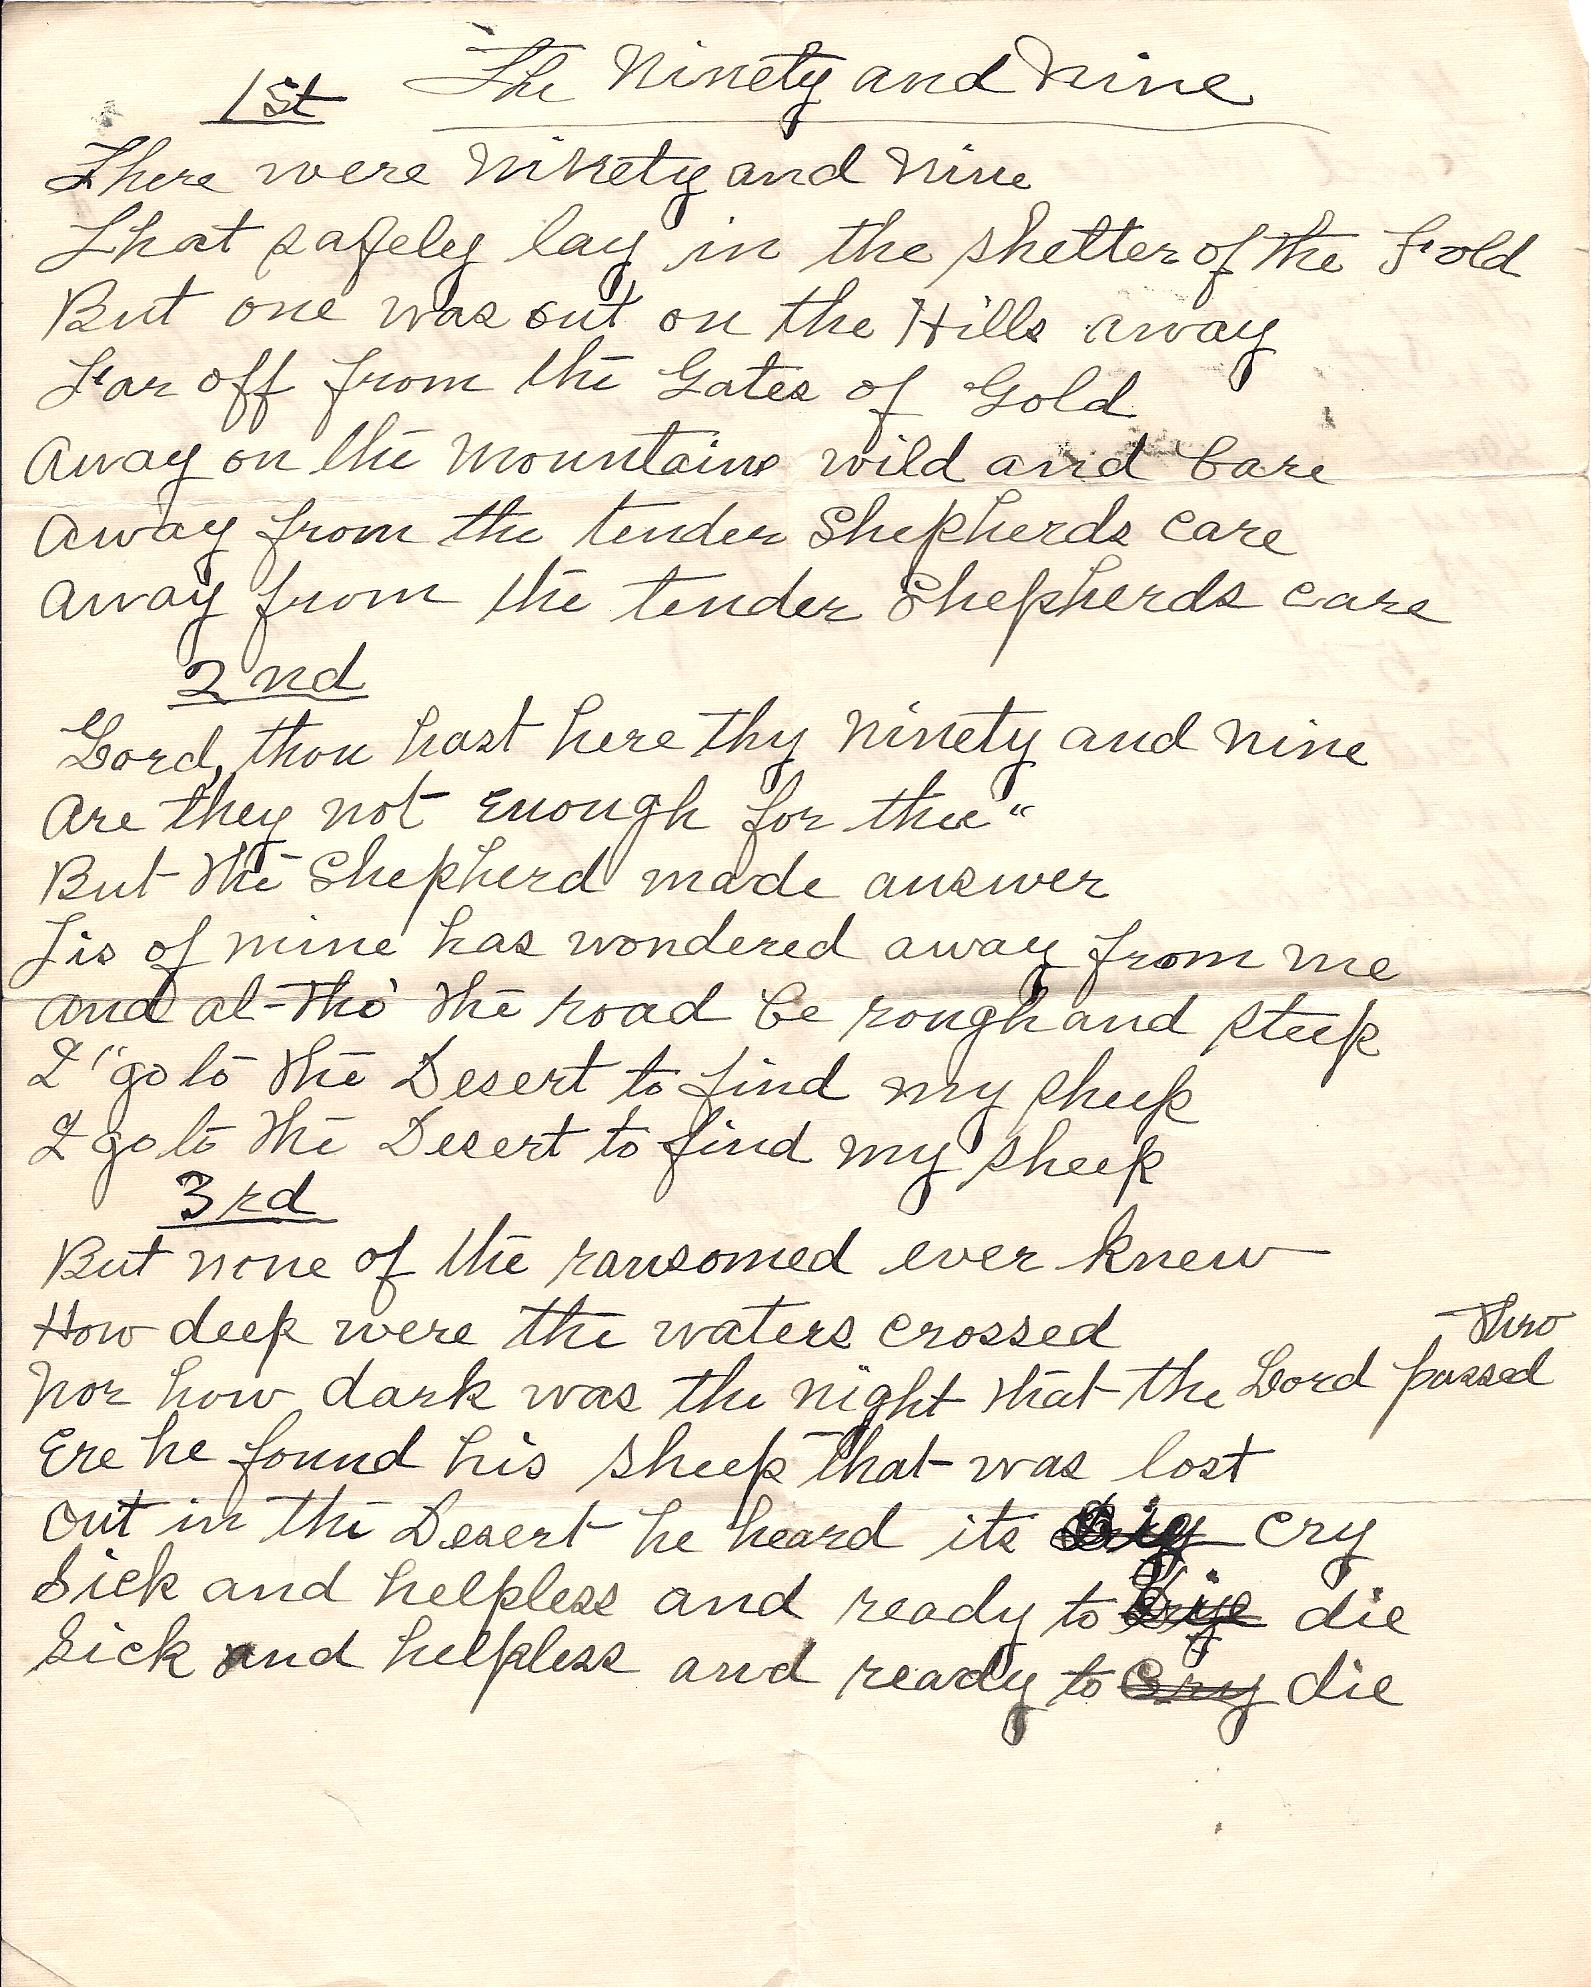 The Ninety and Nine
1st
There were Ninety and Nine
That safely lay in the shelter of the Fold
But one was out on the Hills away
Far off from the Gates of Gold
Away on the Mountains wild and bare
Away from the tender Shepherds care
Away from the tender Shepherds care
2nd
Lord, thou hast here thy Ninety and Nine
Are they not Enough for thee"
But the Shepherd made answer
Tis of mine has wondered away from me
And al-tho' the road be rough and steep
I "go to the Desert to find my sheep
I go to the Desert to find my sheep
3rd
But none of the ransomed ever knew
How deep were the waters crossed
Nor how dark was the night that the Lord passed Thro
Ere he found his sheep that was lost
Out in the Desert he heard its cry
Sick and helpless and ready to die
Sick and helpless and ready to Cry die